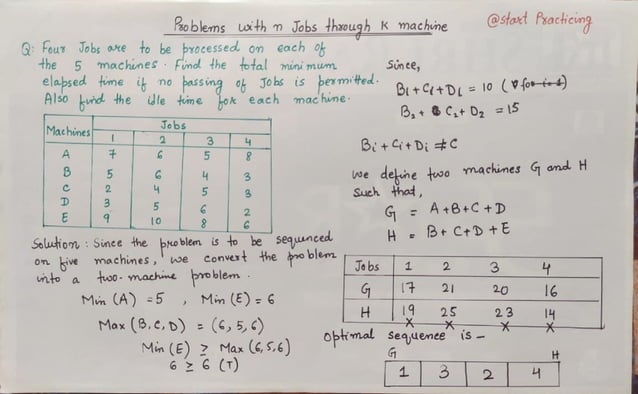 Problems with n Jobs through K machine
@start Practicing
Q: Four Jobs are to be processed on each of
the 5 machines. Find the total minimum
elapsed time if no passing of Jobs is permitted.
Also find the idle time for each machine.
Machines Jobs
1 2 3 4
A 7 6 5 8
B 5 6 4 3
C 2 4 5 3
D 3 5 6 2
E 9 10 8 6
Solution: Since the problem is to be sequenced
on five machines, we convert the problem
into a two-machine problem.
Min (A) = 5 , Min (E) = 6
Max (B, C, D) = (6, 5, 6)
Min (E) ≥ Max (6, 5, 6)
6 ≥ 6 (T)
Since,
B1 + C1 + D1 = 10
B2 + C2 + D2 = 15
Bi + Ci + Di ≠ C
we define two machines G and H
such that,
G = A + B + C + D
H = B + C + D + E
Jobs 1 2 3 4
G 17 21 20 16
H 19 25 23 14
x x x x
Optimal sequence is -
G H
1 3 2 4